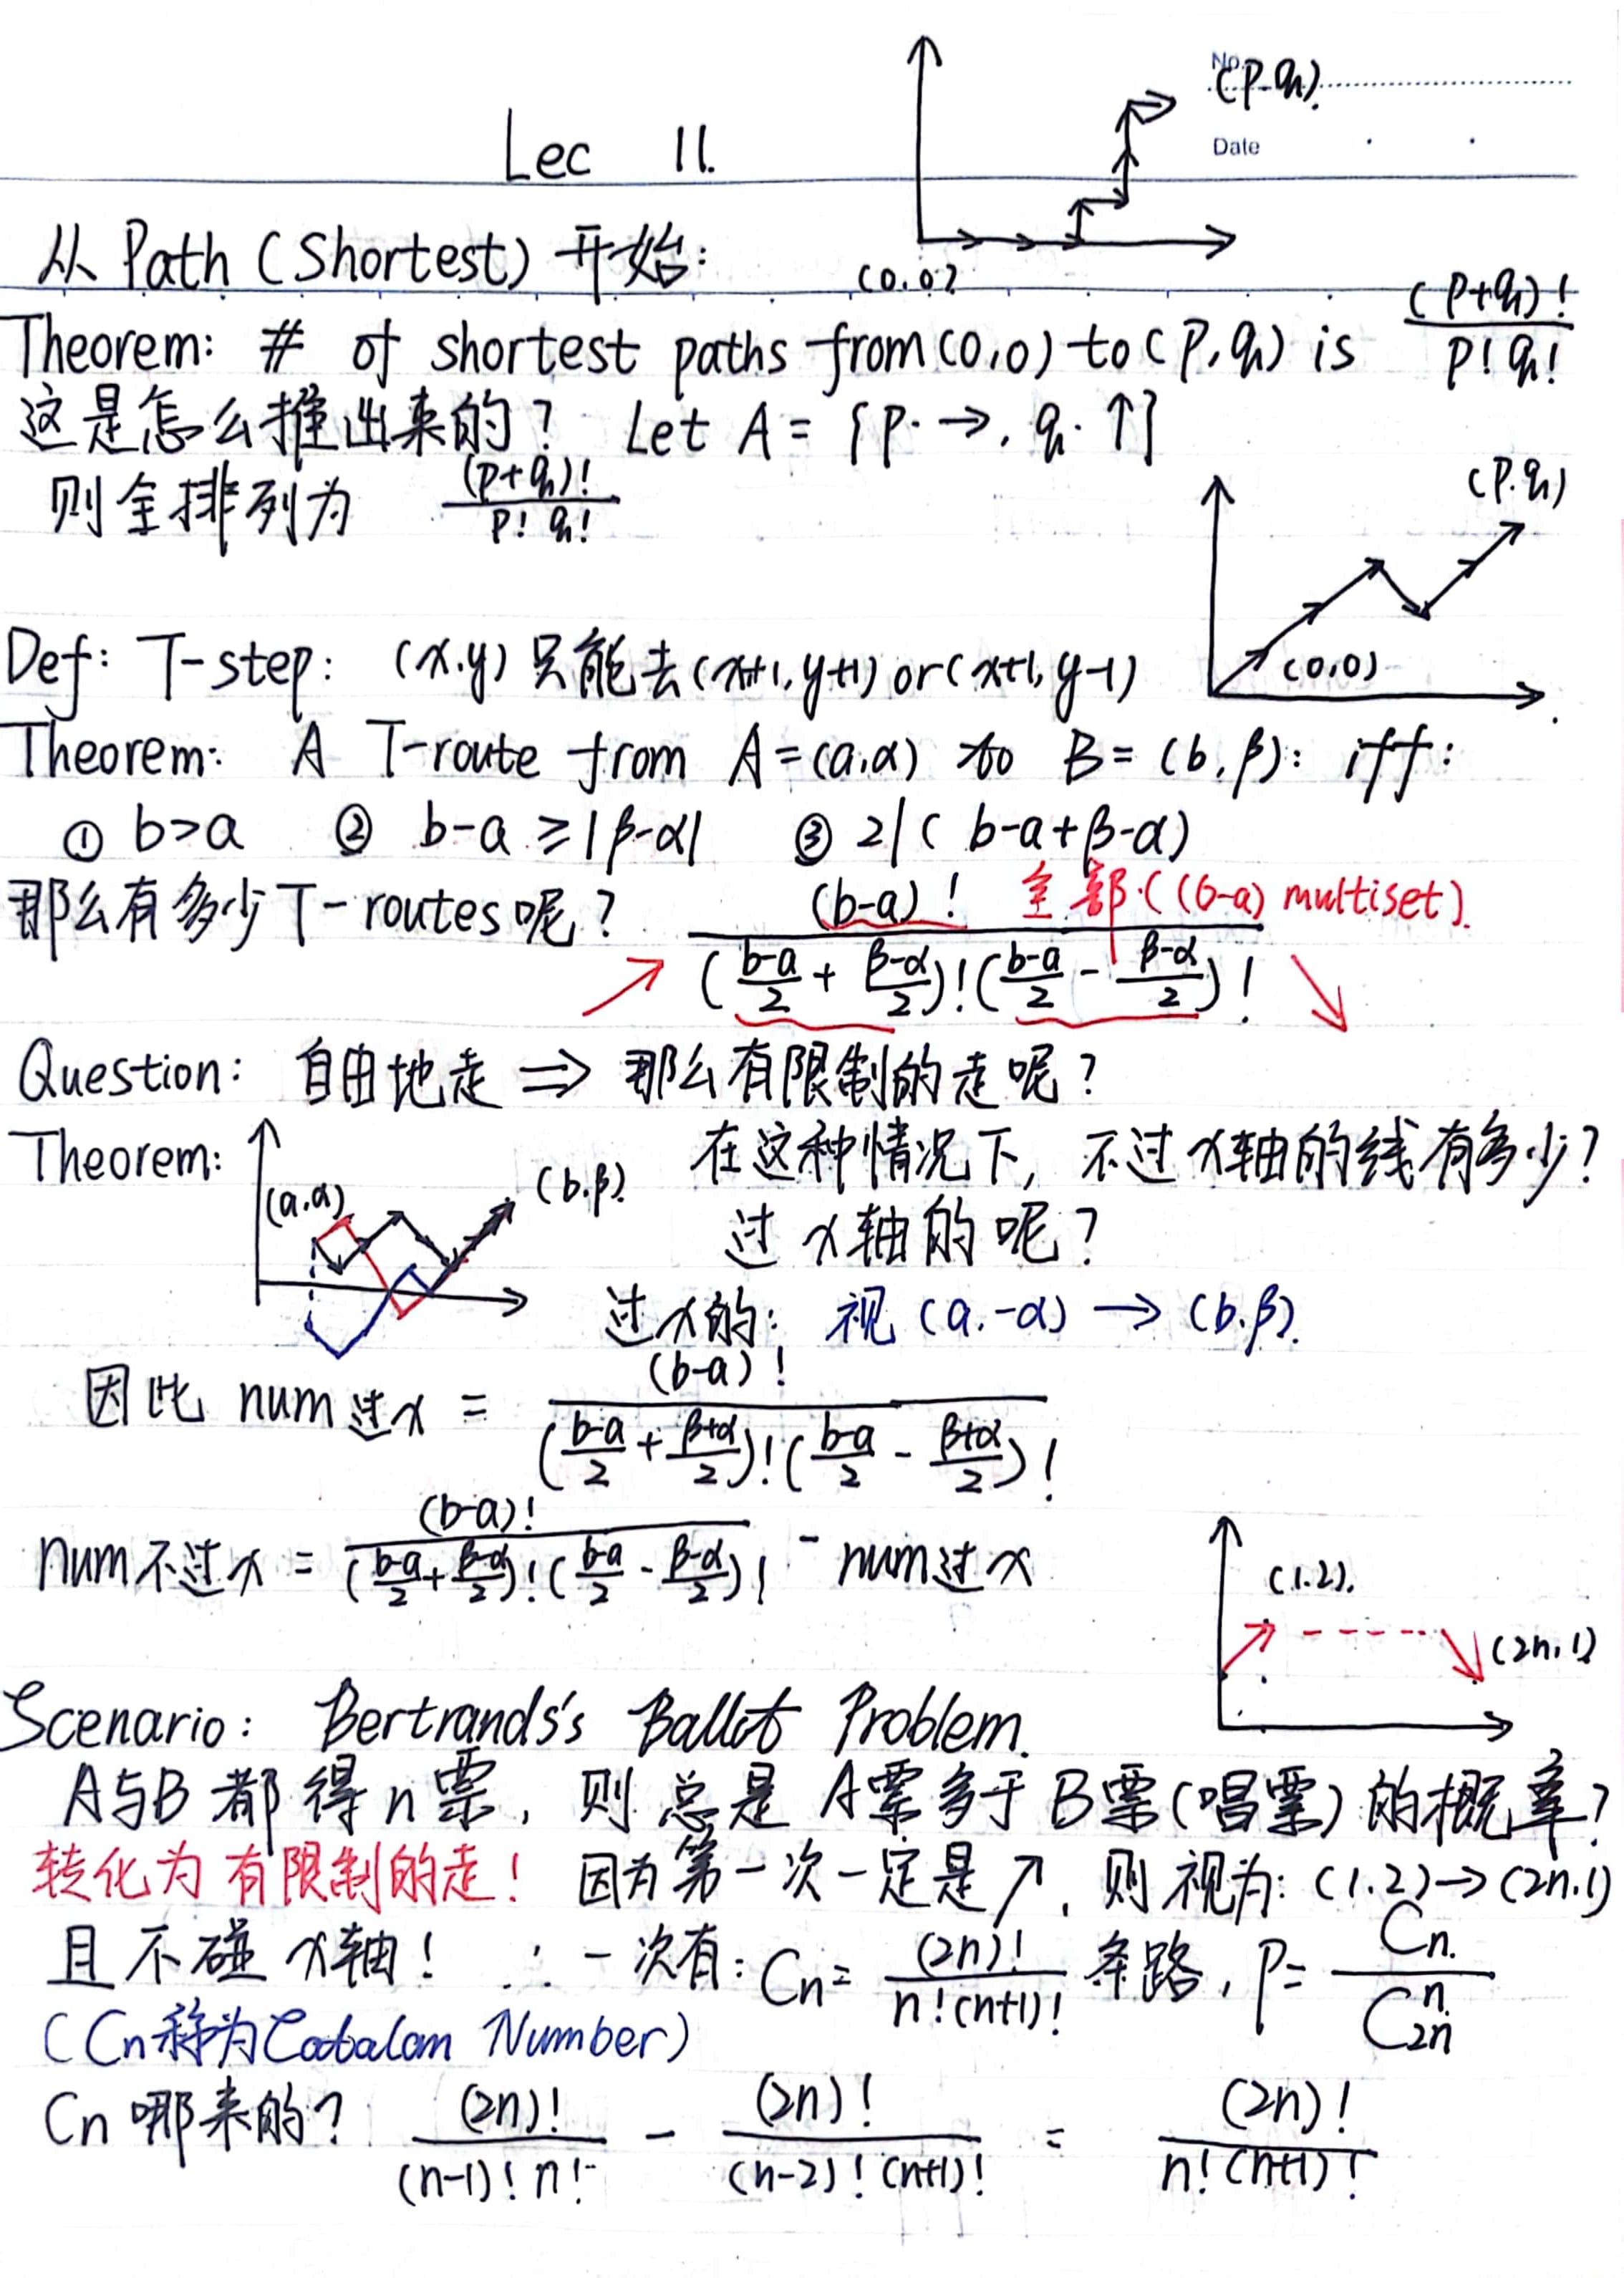 No.
(p.q).
Lec 11.
Date
从 Path (Shortest) 开始:
(0,0)
Theorem: # of shortest paths from (0,0) to (p,q) is (p+q)! / p! q!
这是怎么推出来的? Let A = {p·→, q·↑}
则全排列为 (p+q)! / p! q!
(p.q)
(0,0)
Def: T-step: (x.y) 只能去 (x+1,y+1) or (x+1,y-1)
Theorem: A T-route from A=(a,α) to B=(b,β): iff:
① b>a ② b-a ≥ |β-α| ③ 2|(b-a+β-α)
那么有多少 T-routes 呢? (b-a)! / ((b-a)/2 + (β-α)/2)! ((b-a)/2 - (β-α)/2)! 全部((b-a) multiset).
↗ ↘
Question: 自由地走 ⇒ 那么有限制的走呢?
Theorem: 在这种情况下, 不过x轴的线有多少?
(a,α) (b,β).
过x轴的呢?
过x的: 视 (a,-α) → (b,β).
因此 num过x = (b-a)! / ((b-a)/2 + (β+α)/2)! ((b-a)/2 - (β+α)/2)!
num不过x = (b-a)! / ((b-a)/2 + (β-α)/2)! ((b-a)/2 - (β-α)/2)! - num过x
(1.2).
(2n,1)
Scenario: Bertrands's Ballot Problem.
A与B都得n票, 则总是A票多于B票(唱票)的概率?
转化为有限制的走! 因为第一次一定是↗, 则视为: (1.2)→(2n.1)
且不碰x轴! ∴ 一次有: Cn = (2n)! / n!(n+1)! 条路, P = Cn. / C_{2n}^{n}
(Cn称为Catalan Number)
Cn哪来的? (2n)! / (n-1)! n! - (2n)! / (n-2)! (n+1)! = (2n)! / n! (n+1)!